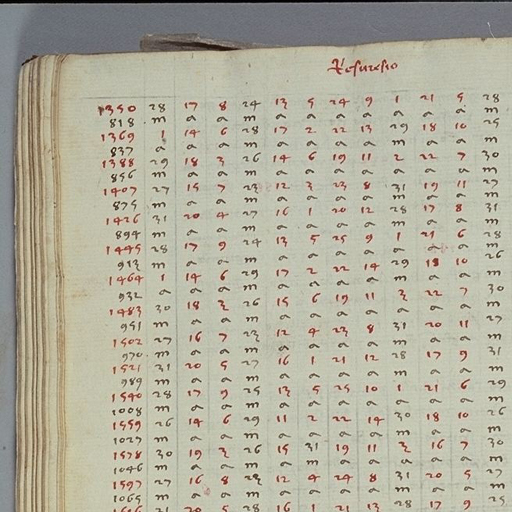 Resuresio
1350 28 17 8 24 13 5 24 9 1 21 5 28
818 m a a m a a a a a a a m
1369 1 14 6 28 17 2 22 13 29 18 10 25
837 a a a m a a a a m a a m
1388 29 18 3 26 14 6 19 11 2 22 7 30
856 m a a m a a a a a a a m
1407 27 15 7 23 12 3 23 8 31 19 11 27
875 m a a m a a a a m a a m
1426 31 20 4 27 16 1 20 12 28 17 8 31
894 m a a m a a a a m a a m
1445 28 17 9 24 13 5 25 9 1 21 6 28
913 m a a m a a a a a a a m
1464 1 14 6 29 17 2 22 14 29 18 10 26
932 a a a m a a a a m a a m
1483 30 18 3 26 15 6 19 11 3 22 7 30
951 m a a m a a a a a a a m
1502 27 16 7 23 12 4 23 8 31 20 11 27
970 m a a m a a a a m a a m
1521 31 20 5 27 16 1 21 12 28 17 9 31
989 m a a m a a a a m a a m
1540 28 17 9 25 13 5 25 10 1 21 6 29
1008 m a a m a a a a a a a m
1559 26 14 6 29 11 2 22 14 30 18 10 26
1027 m a a m a a a a m a a m
1578 30 19 3 26 15 31 19 11 3 16 7 30
1046 m a a m a m a a a a a m
1597 27 16 8 23 12 4 24 8 31 20 5 27
1065 m a a m a a a a m a a m
1616 31 20 5 28 16 1 21 13 28 17 9 25